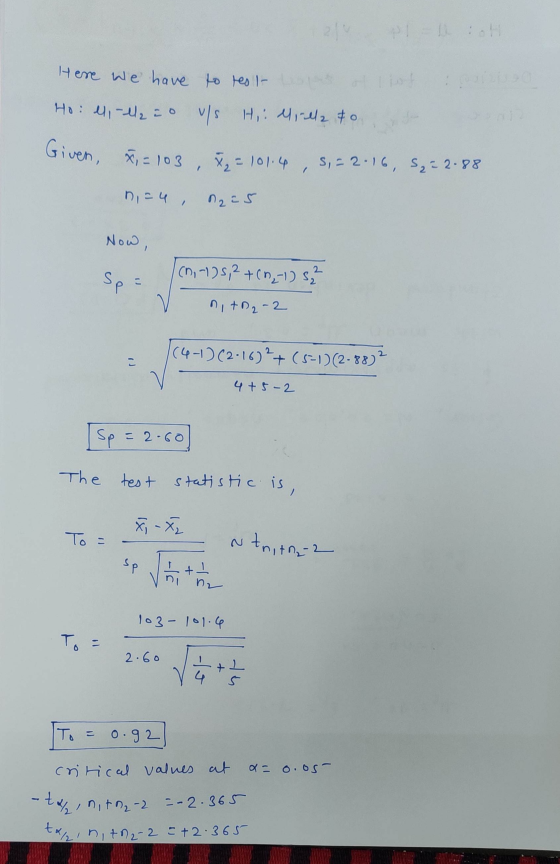 Here we have to test
H₀: μ₁-μ₂ = 0 v/s H₁: μ₁-μ₂ ≠ 0
Given, x̄₁ = 103 , x̄₂ = 101.4 , s₁ = 2.16, s₂ = 2.88
n₁ = 4 , n₂ = 5
Now,
Sp = √((n₁-1)s₁² + (n₂-1)s₂² / n₁+n₂-2)
= √((4-1)(2.16)² + (5-1)(2.88)² / 4+5-2)
Sp = 2.60
The test statistic is,
T₀ = x̄₁ - x̄₂ / sp √(1/n₁ + 1/n₂) ~ t n₁+n₂-2
T₀ = 103 - 101.4 / 2.60 √(1/4 + 1/5)
T₀ = 0.92
critical values at α = 0.05
- t α/2, n₁+n₂-2 = -2.365
t α/2, n₁+n₂-2 = +2.365